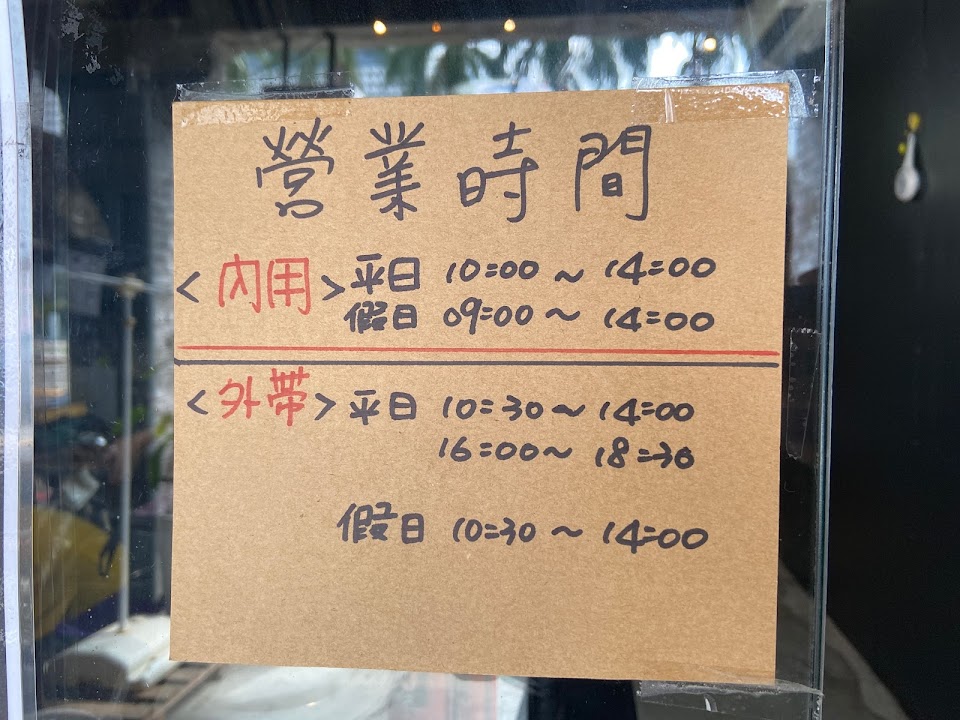 營業時間
<內用>平日 10:00 ~ 14:00
假日 09:00 ~ 14:00
<外帶>平日 10:30 ~ 14:00
16:00 ~ 18:30
假日 10:30 ~ 14:00